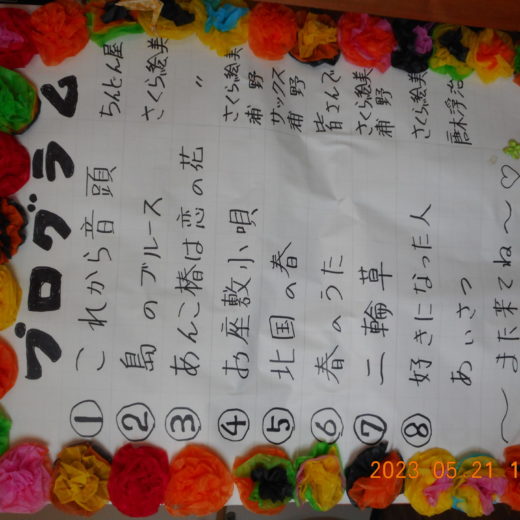 プログラム
① これから音頭 ちんどん屋
② 島のブルース さくら絵美
③ あんこ椿は恋の花 〃
④ お座敷小唄 さくら絵美 浦野
⑤ 北国の春 サックス 浦野
⑥ 春のうた 皆さんで
⑦ 二輪草 さくら絵美 浦野
⑧ 好きになった人 さくら絵美
あいさつ
〜また来てね〜♡
2023 05 21 1